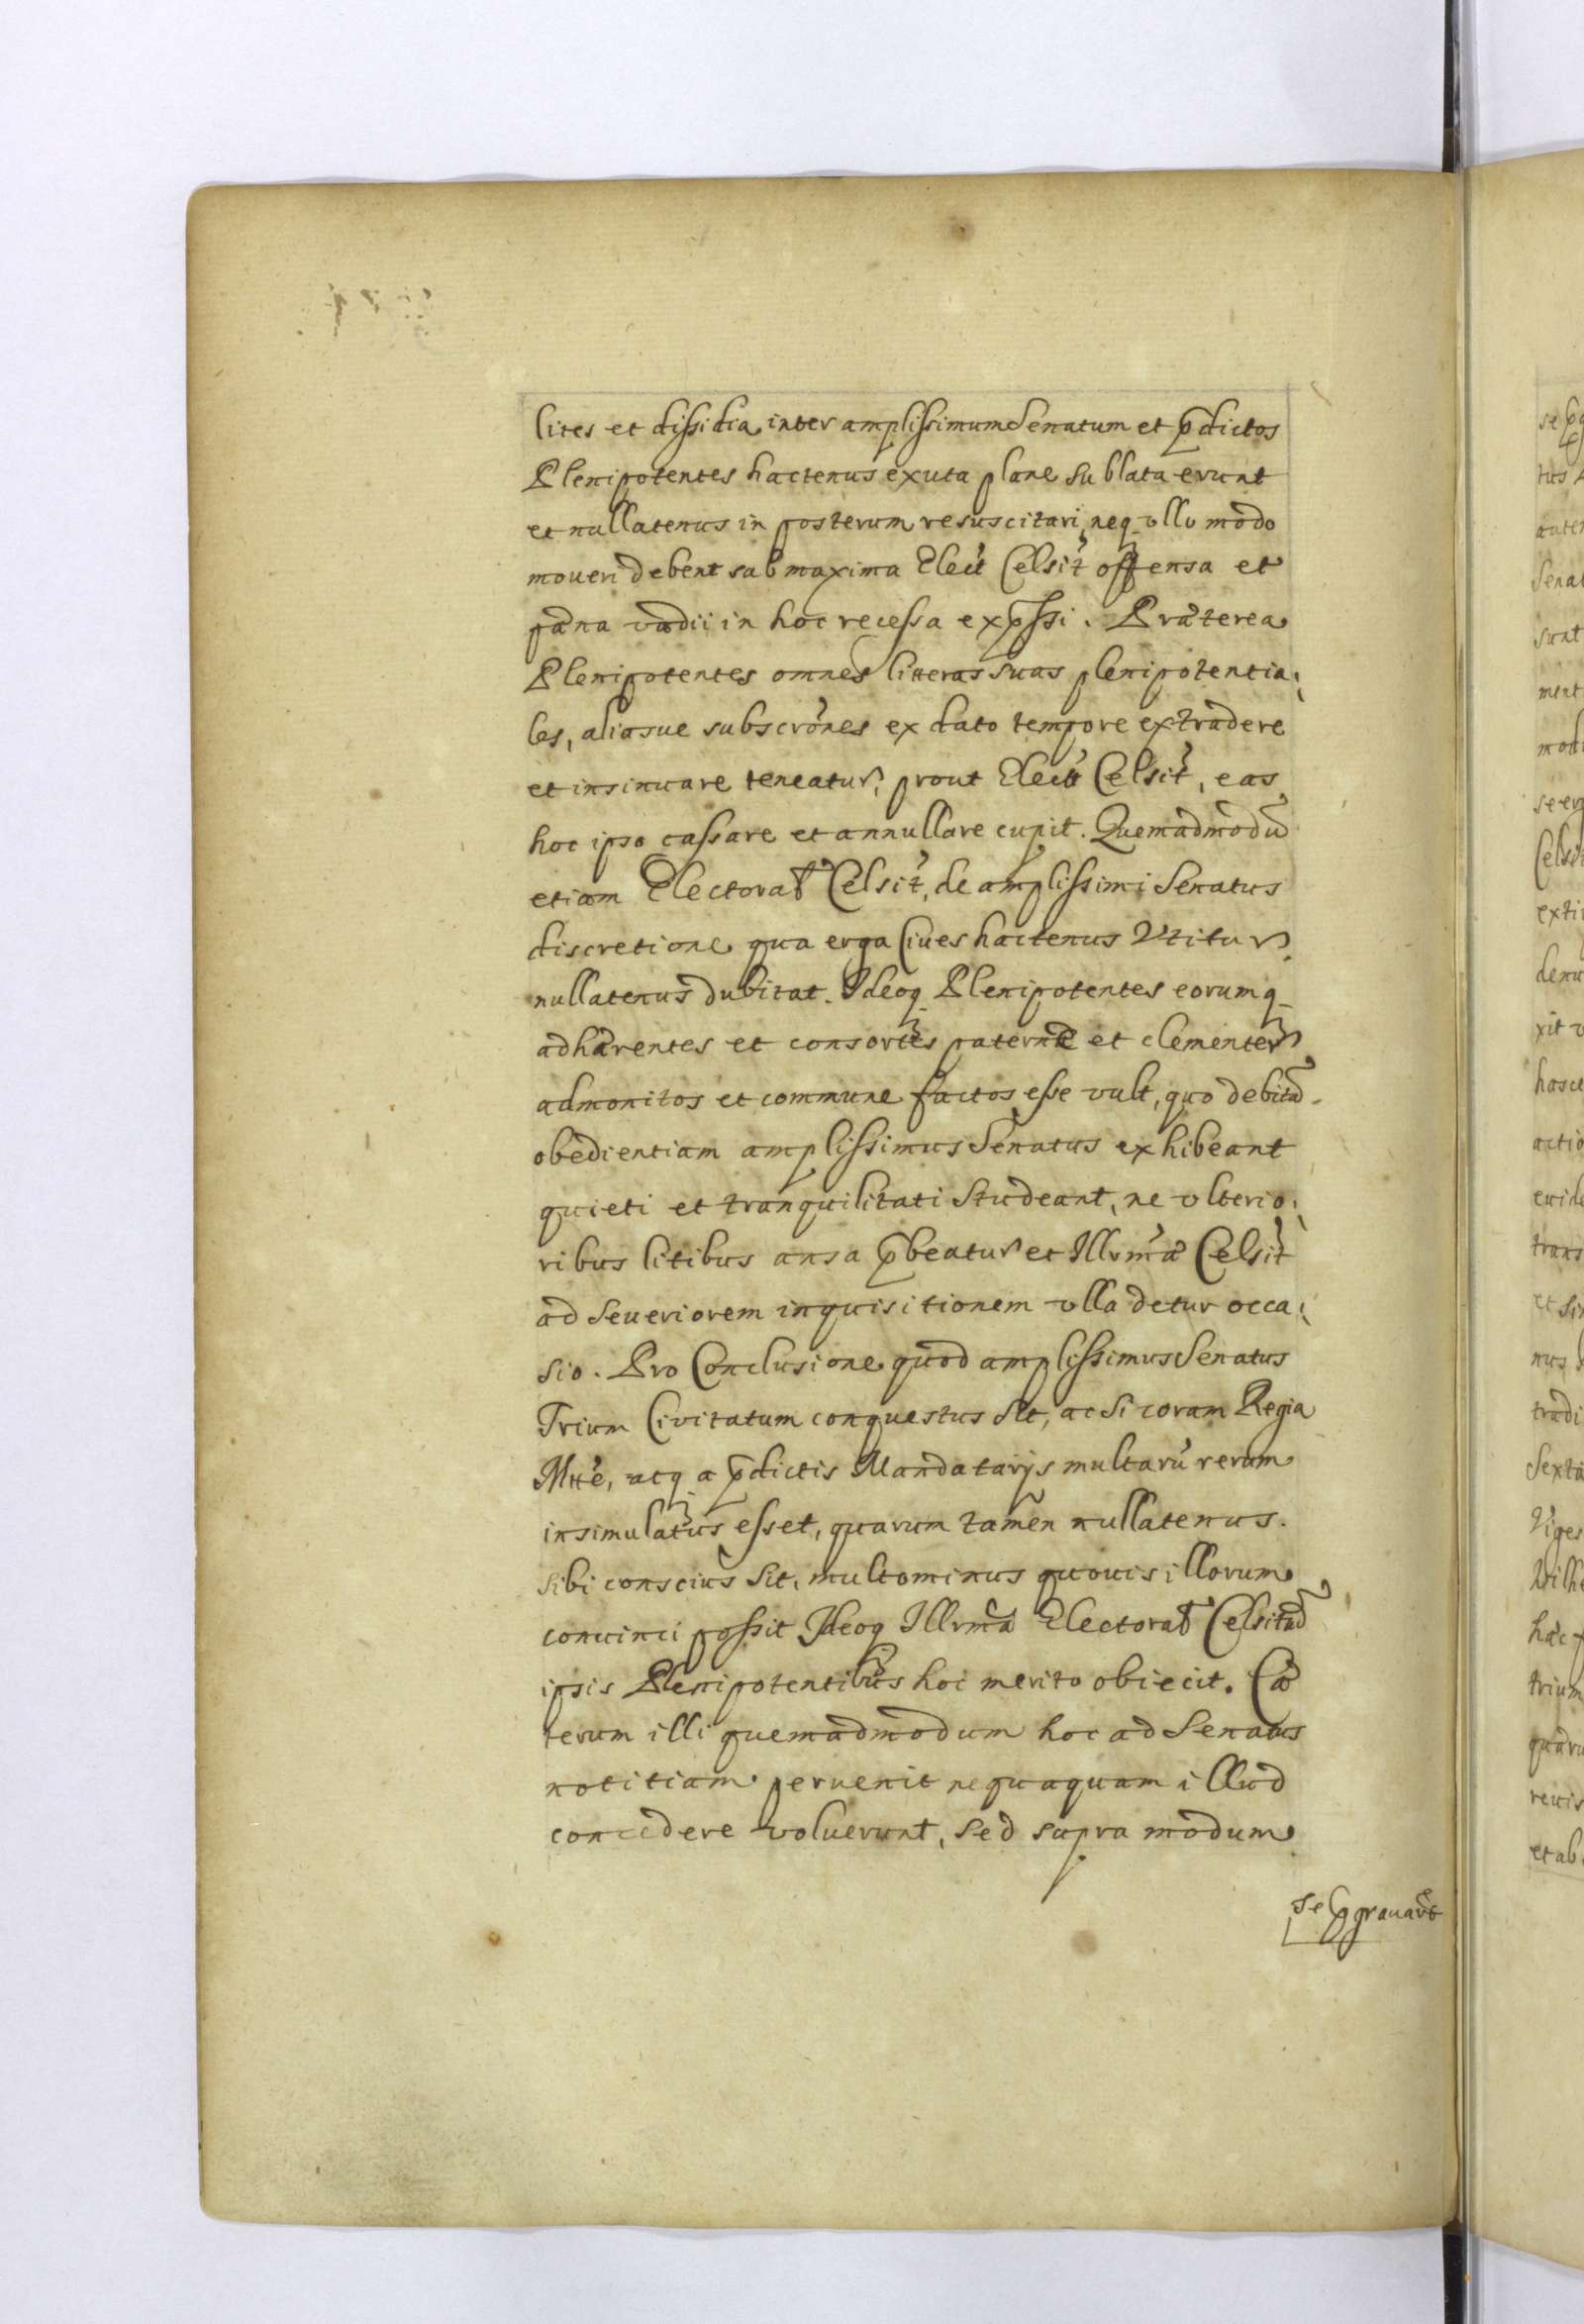 lites et dissidia inter amplissimum Senatum et p̄dictos
Plenipotentes hactenus exuta plane sublata erunt
et nullatenus in posterum resuscitari, neq₃ ullo modo
moveri debent sub maxima Elect Celsit offensa et
pæna vadii in hoc recessa exp̄ssi. Præterea
Plenipotentes omnes litteras suas plenipotentia:
les, aliasue subscrōnes ex dato tempore extradere
et insinuare teneatur, prout Elect Celsit, eas
hoc ipso cassare et annullare cupit. Quemadmodū
etiam Electoral Celsit, de amplissimi Senatus
discretione qua erga Ciues hactenus Vtitur
nullatenus dubitat. Ideoq₃ Plenipotentes eorumq₃
adhærentes et consortes paterne et clementer
admonitos et commune factos esse vult, quo debitā
obedientiam amplissimus Senatus exhibeant
quieti et tranquilitati studeant, ne vlterio:
ribus litibus ansa p̄beatur et Illrmæ Celsit
ad seueriorem inquisitionem vlla detur occa:
sio. Pro Conclusione quod amplissimus Senatus
Trium Civitatum conquestus sit, ac si coram Regia
Mtte, atq₃ a p̄dictis Mandatarijs multarū rerum
insimulatus esset, quarum tamen nullatenus
sibi conscius sit, multominus quouis illorum
conuinci possit Ideoq₃ Illrma Electoral Celsitud
ipsis Plenipotentibus hoc merito obiecit. Cæ
terum illi quemadmodum hoc ad Senatus
notitiam peruenit nequaquam illud
concedere voluerunt, sed supra modum
se ꝓgrauarūt